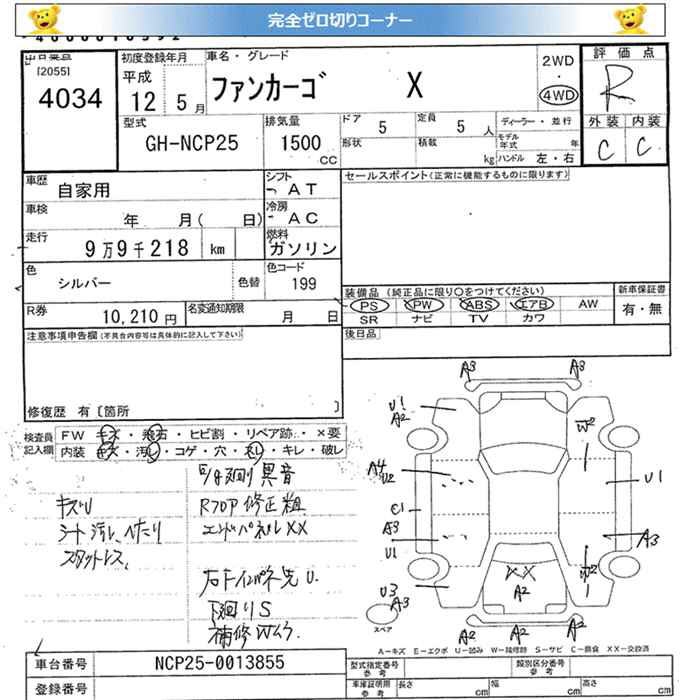 完全ゼロ切りコーナー
出品番号 初度登録年月 車名・グレード 2WD・4WD 評価点
[2055] 平成 R
4034 12 5月 ファンカーゴ X
型式 排気量 ドア 5 定員 5人 ディーラー・並行 外装 内装
GH-NCP25 1500cc 形状 積載 kg モデル年式 年 C C
ハンドル 左・右
車歴 自家用 シフト AT セールスポイント(正常に機能するものに限ります)
車検 年 月( 日) 冷房 AC
走行 9万9千218 km 燃料 ガソリン
色 シルバー 色替 色コード 199
装備品(純正品に限り○をつけてください) 新車保証書
R券 10,210円 名変通知期限 月 日 PS PW ABS エアB AW 有・無
SR ナビ TV カワ
注意事項申告欄(不具合内容等は具体的に記入して下さい) 後日品
修復歴 有〔箇所 〕
検査員記入欄 FW キズ・飛石・ヒビ割・リペア跡・×要
内装 キズ・汚レ・コゲ・穴・ネレ・キレ・破レ
異音
キズU Rフロア修正粗
シート汚レ、へたり エンドパネルXX
スタットレス、
右F インパネ先 U.
下廻りS
補修
A3 A3
U1
A2 W2
A4
U2 U1
E1
A3
U1 A3
W2
XX
A2
U3
A3
スペア
A2 A2
A－キズ E－エクボ U－凹み W－補修跡 S－サビ C－腐食 XX－交換済
車台番号 NCP25-0013855 型式指定番号 参考 類別区分番号 参考
登録番号 車庫証明用 参考 長さ cm 幅 cm 高さ cm